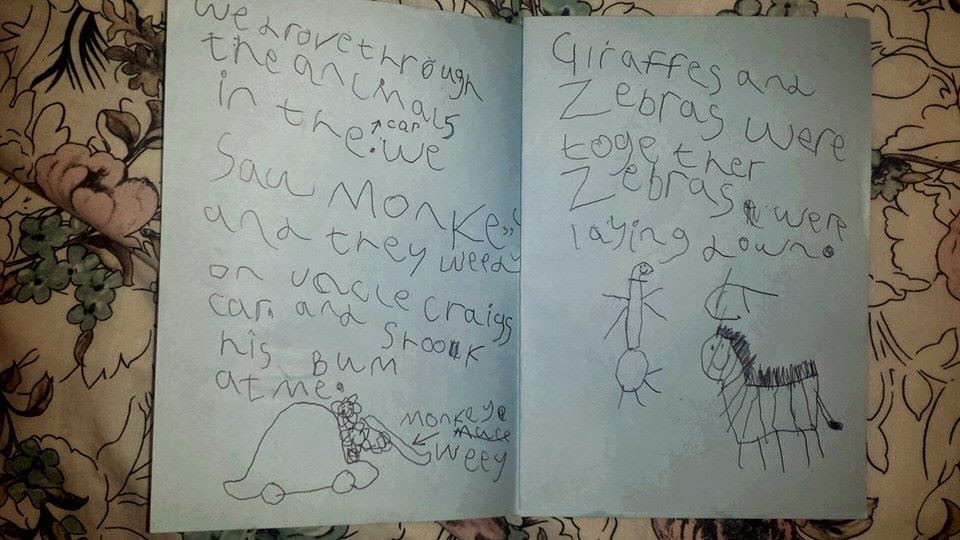 we drove through
the animals
in the car. we
Saw Monkeys
and they weed
on uncle Craigs
car. and Shook
his Bum
at me.
monkeys
weey
Giraffes and
Zebras were
together
Zebras were
laying down.